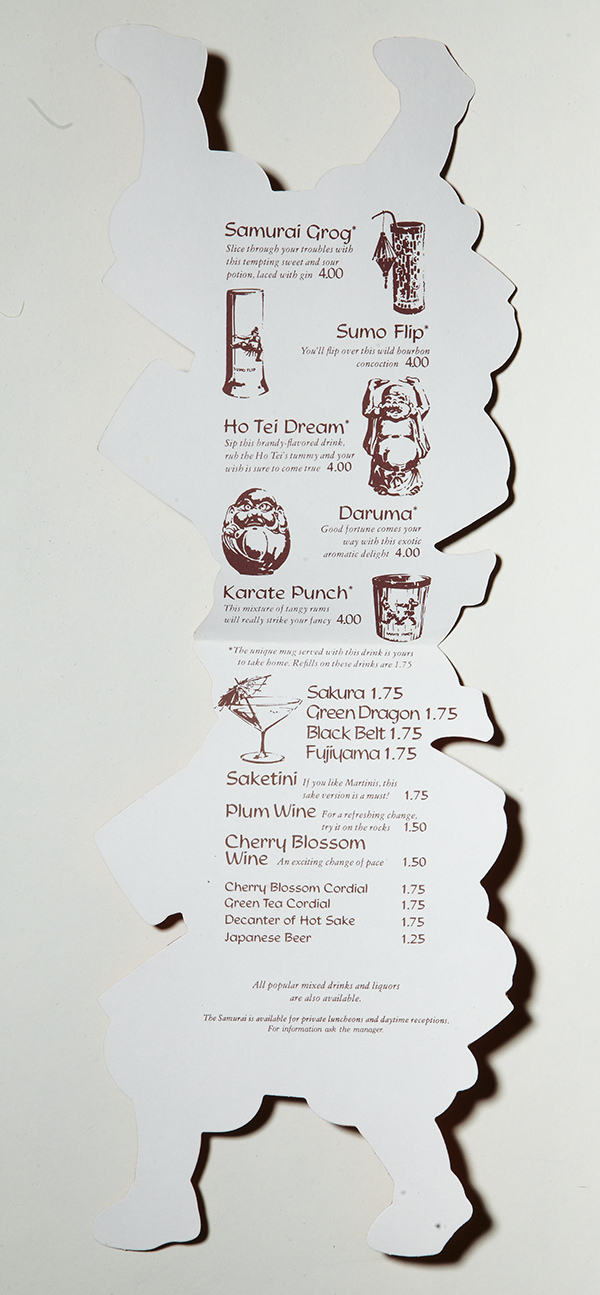 Samurai Grog*
Slice through your troubles with
this tempting sweet and sour
potion, laced with gin 4.00
Sumo Flip*
You'll flip over this wild bourbon
concoction 4.00
SUMO FLIP
Ho Tei Dream*
Sip this brandy-flavored drink,
rub the Ho Tei's tummy and your
wish is sure to come true 4.00
Daruma*
Good fortune comes your
way with this exotic
aromatic delight 4.00
Karate Punch*
This mixture of tangy rums
will really strike your fancy 4.00
KARATE PUNCH
*The unique mug served with this drink is yours
to take home. Refills on these drinks are 1.75
Sakura 1.75
Green Dragon 1.75
Black Belt 1.75
Fujiyama 1.75
Saketini If you like Martinis, this
sake version is a must! 1.75
Plum Wine For a refreshing change,
try it on the rocks 1.50
Cherry Blossom
Wine An exciting change of pace 1.50
Cherry Blossom Cordial 1.75
Green Tea Cordial 1.75
Decanter of Hot Sake 1.75
Japanese Beer 1.25
All popular mixed drinks and liquors
are also available.
The Samurai is available for private luncheons and daytime receptions.
For information ask the manager.